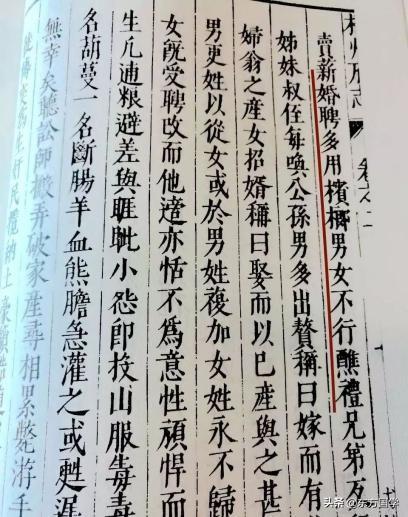 州府志 卷之二
賣薪婚聘多用檳榔男女不行醮禮兄弟
姊妹叔侄每喚公孫男多出贅稱曰嫁而有
婦翁之產女招婿稱曰娶而以己產與之甚
男更姓以從女或於男姓複加女姓永不歸
女旣受聘改而他適亦恬不爲意性頑悍而
生凡逋粮避差與睚眦小怨即投山服毒毒
名葫蔓一名斷腸羊血熊膽急灌之或甦遲
無幸矣聽訟師搬弄破家產尋相累斃游手
头条 @东方国学